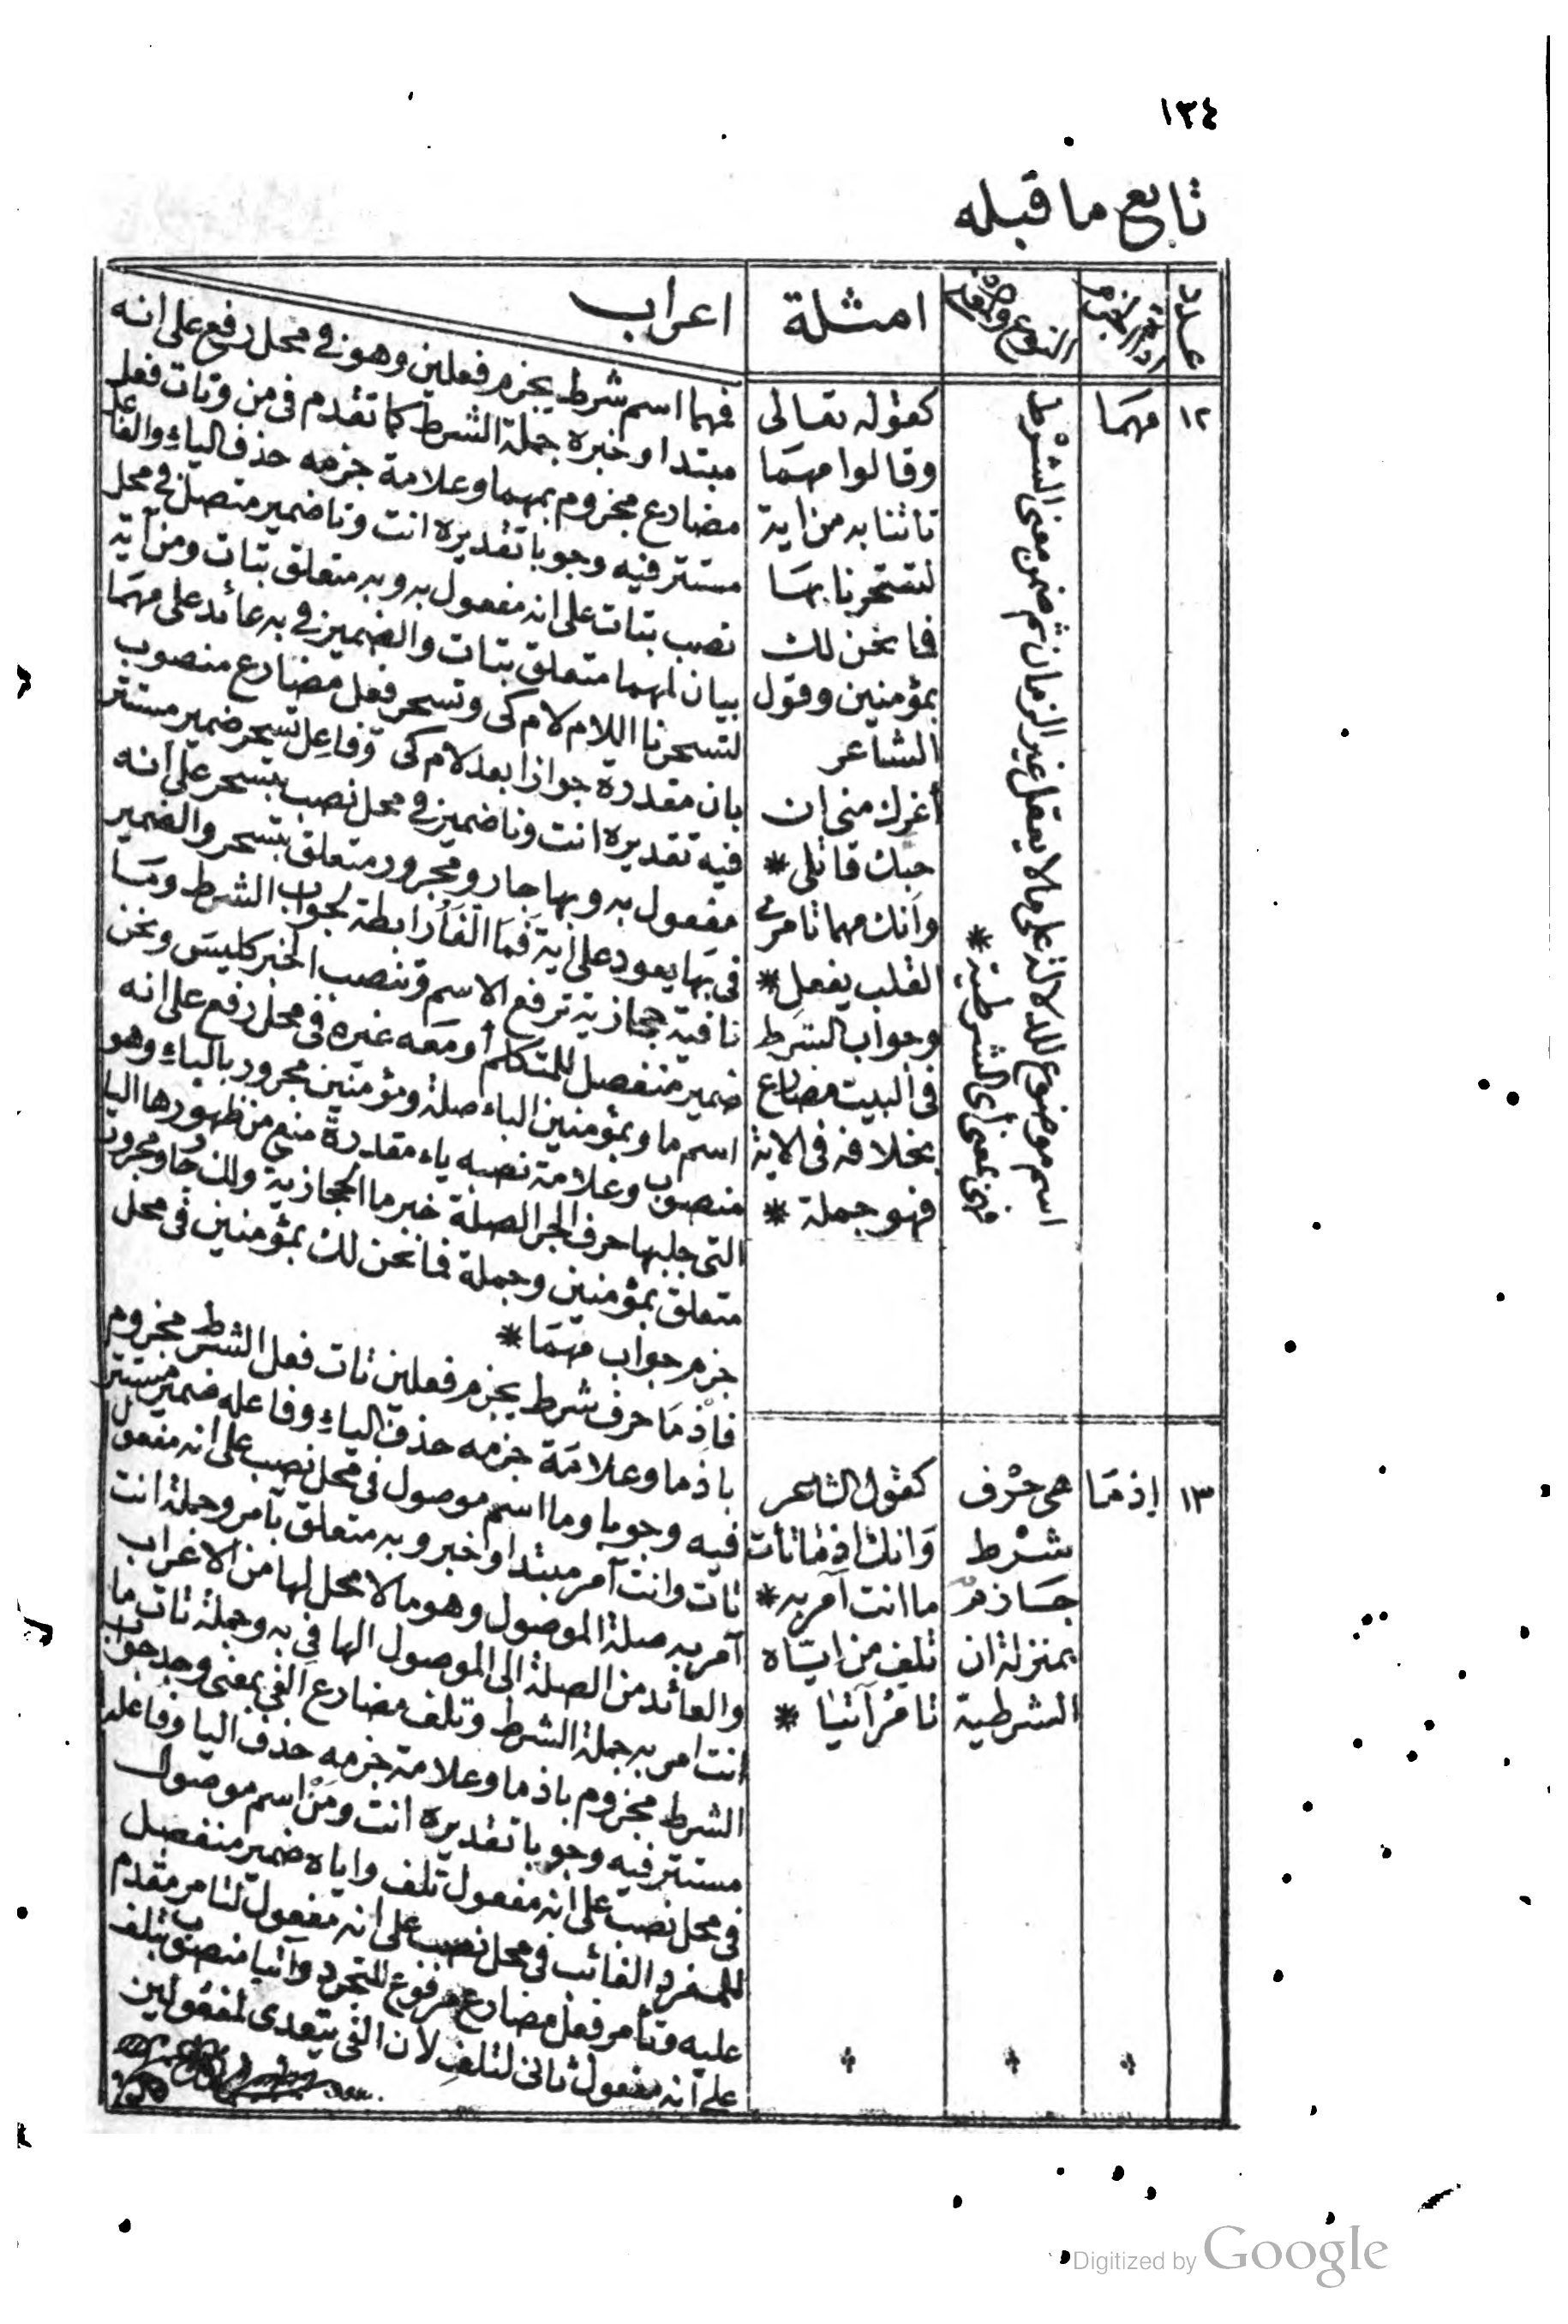 ١٣٤
تابع ما قبله
عدد
النوع
امثلة
اعراب
١٢
مهمَا
اسم موضوع للدلالة على ما لا يعقل غير الزمان ثم ضمن معنى الشرْط
فهى بمعنى أى الشرطية *
كقوله تعالى
وقالوا مهمَا
تاتنا به من اية
لتسحرنا بهَا
فما نحن لك
بمؤمنين وقول
الشاعر
أغرك منى ان
حبك قاتلى *
وأنك مهما تامرى
القلب يفعل *
وجواب الشرط
فى البيت مضارع
بخلافه فى الاية
فهو جملة *
فمهما اسم شرط يجزم فعلين وهو فى محل رفع على انه
مبتدا وخبره جملة الشرط كما تقدم فى من وتات فعل
مضارع مجزوم بمهما وعلامة جزمه حذف الياء والفاعل
مستتر فيه وجوبا تقديره انت ونا ضمير متصل فى محل
نصب بتات على انه مفعول به وبه متعلق بتات ومن آية
بيان لمهما متعلق بتات والضمير فى به عائد على مهمَا
لتسحرنا اللام لام كى وتسحر فعل مضارع منصوب
بان مقدرة جوازا بعد لام كى وفاعل تسحر ضمير مستتر
فيه تقديره انت ونا ضمير فى محل نصب بتسحر على انه
مفعول به وبها جار ومجرور متعلق بتسحر والضمير
فى بهَا يعود على أية فمَا الفاء رابطة لجواب الشرط ومَا
نافية حجازية ترفع الاسم وتنصب الخبر كليسَ ونحن
ضمير منفصل للمتكلم أو معَه غيره فى محل رفع على انه
اسم ما وبمؤمنين الباء صلة ومؤمنين مجرور بالباء وهو
منصوب وعلامة نصبه ياء مقدرة منع من ظهورها اليا
التى جلبها حرف الجر الصلة خبر ما الحجازية ولك جار ومجرور
متعلق بمؤمنين وجملة فما نحن لك بمؤمنين فى محل
جزم جواب مهمَا *
١٣
إذمَا
هى حرْف
شرْط
جَازم
بمنزلة ان
الشرطية
كقول الشاعر
وَانك اذمَا تأت
ما انت آمر به *
تلفِ من ايّاه
تامُرُ آتيا *
فاذمَا حرف شرط يجزم فعلين تات فعل الشرط مجزوم
باذما وعلامَة جزمه حذف الياء وفاعله ضمير مستتر
فيه وجوبا وما اسم موصول فى محل نصب على انه مفعول
تات وانت آمر مبتدا وخبر وبه متعلق بآمر وجملة انت
آمر به صلة الموصول وهو ما لا محل لها من الاعراب
والعائد من الصلة الى الموصول الها فى به وجملة تات ما
انت امر به جملة الشرط وتلف مضارع الفى بمعنى وجد جواب
الشرط مجزوم باذما وعلامة جزمه حذف اليا وفاعله
مستتر فيه وجوبا تقديره انت ومَنْ اسم موصول
فى محل نصب على أنه مفعول تلف واياه ضمير منفصل
للمفرد الغائب فى محل نصب على انه مفعول لتامر مقدم
عليه وتأمر فعل مضارع مرفوع للتجرد وآتيا منصوب بتلف
على أنه مفعول ثانى لتلفِ لأن الفى يتعدى لمفعولين
Digitized by Google